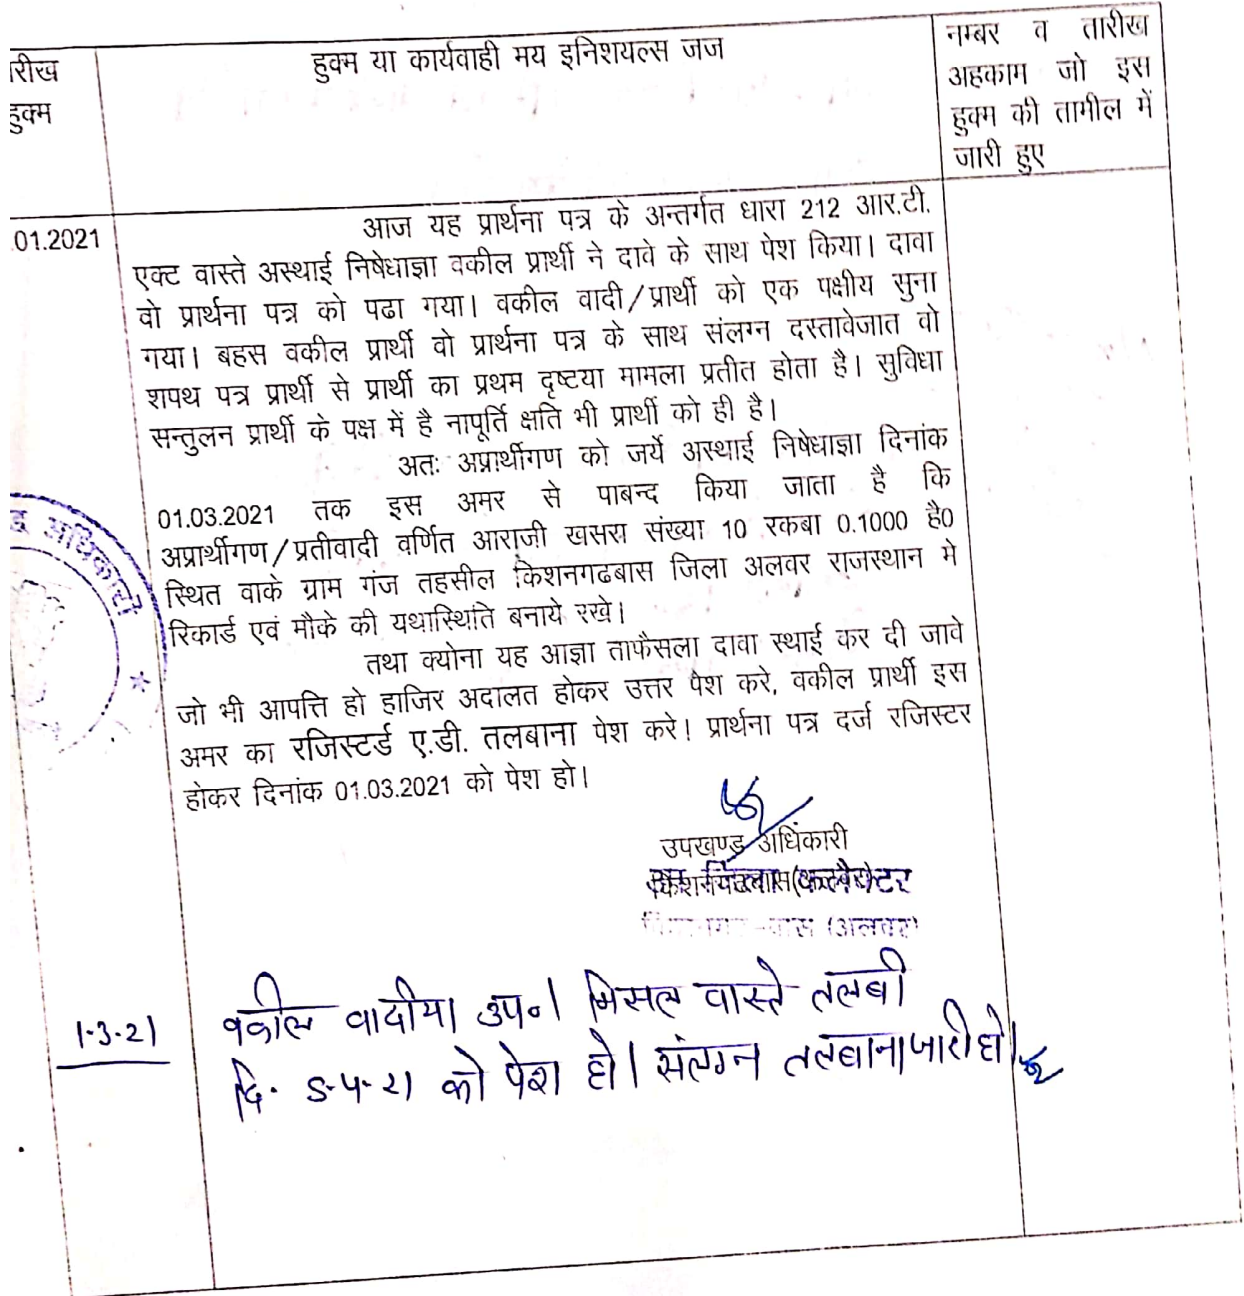 रीख
हुक्म
हुक्म या कार्यवाही मय इनिशयल्स जज
नम्बर व तारीख
अहकाम जो इस
हुक्म की तामील में
जारी हुए
.01.2021
आज यह प्रार्थना पत्र के अन्तर्गत धारा 212 आर.टी.
एक्ट वास्ते अस्थाई निषेधाज्ञा वकील प्रार्थी ने दावे के साथ पेश किया। दावा
वो प्रार्थना पत्र को पढा गया। वकील वादी/प्रार्थी को एक पक्षीय सुना
गया। बहस वकील प्रार्थी वो प्रार्थना पत्र के साथ संलग्न दस्तावेजात वो
शपथ पत्र प्रार्थी से प्रार्थी का प्रथम दृष्टया मामला प्रतीत होता है। सुविधा
सन्तुलन प्रार्थी के पक्ष में है नापूर्ति क्षति भी प्रार्थी को ही है।
अतः अप्रार्थीगण को जर्ये अस्थाई निषेधाज्ञा दिनांक
01.03.2021 तक इस अमर से पाबन्द किया जाता है कि
अप्रार्थीगण/प्रतीवादी वर्णित आराजी खसरा संख्या 10 रकबा 0.1000 है0
स्थित वाके ग्राम गंज तहसील किशनगढबास जिला अलवर राजस्थान मे
रिकार्ड एवं मौके की यथास्थिति बनाये रखे।
तथा क्योना यह आज्ञा ताफैसला दावा स्थाई कर दी जावे
जो भी आपत्ति हो हाजिर अदालत होकर उत्तर पेश करे, वकील प्रार्थी इस
अमर का रजिस्टर्ड ए.डी. तलबाना पेश करे। प्रार्थना पत्र दर्ज रजिस्टर
होकर दिनांक 01.03.2021 को पेश हो।
अधिकारी
उपखण्ड अधिकारी
(अलवर)
1-3-21
वकील वादीया उप०। मिसल वास्ते तलबी
दि. 5-4-21 को पेश हो। संलग्न तलबाना जारी हो।